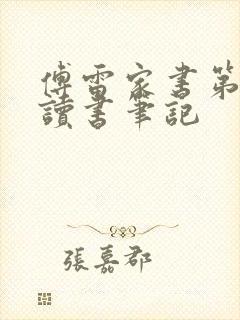 傅雷家書第
讀書筆記
張嘉郡